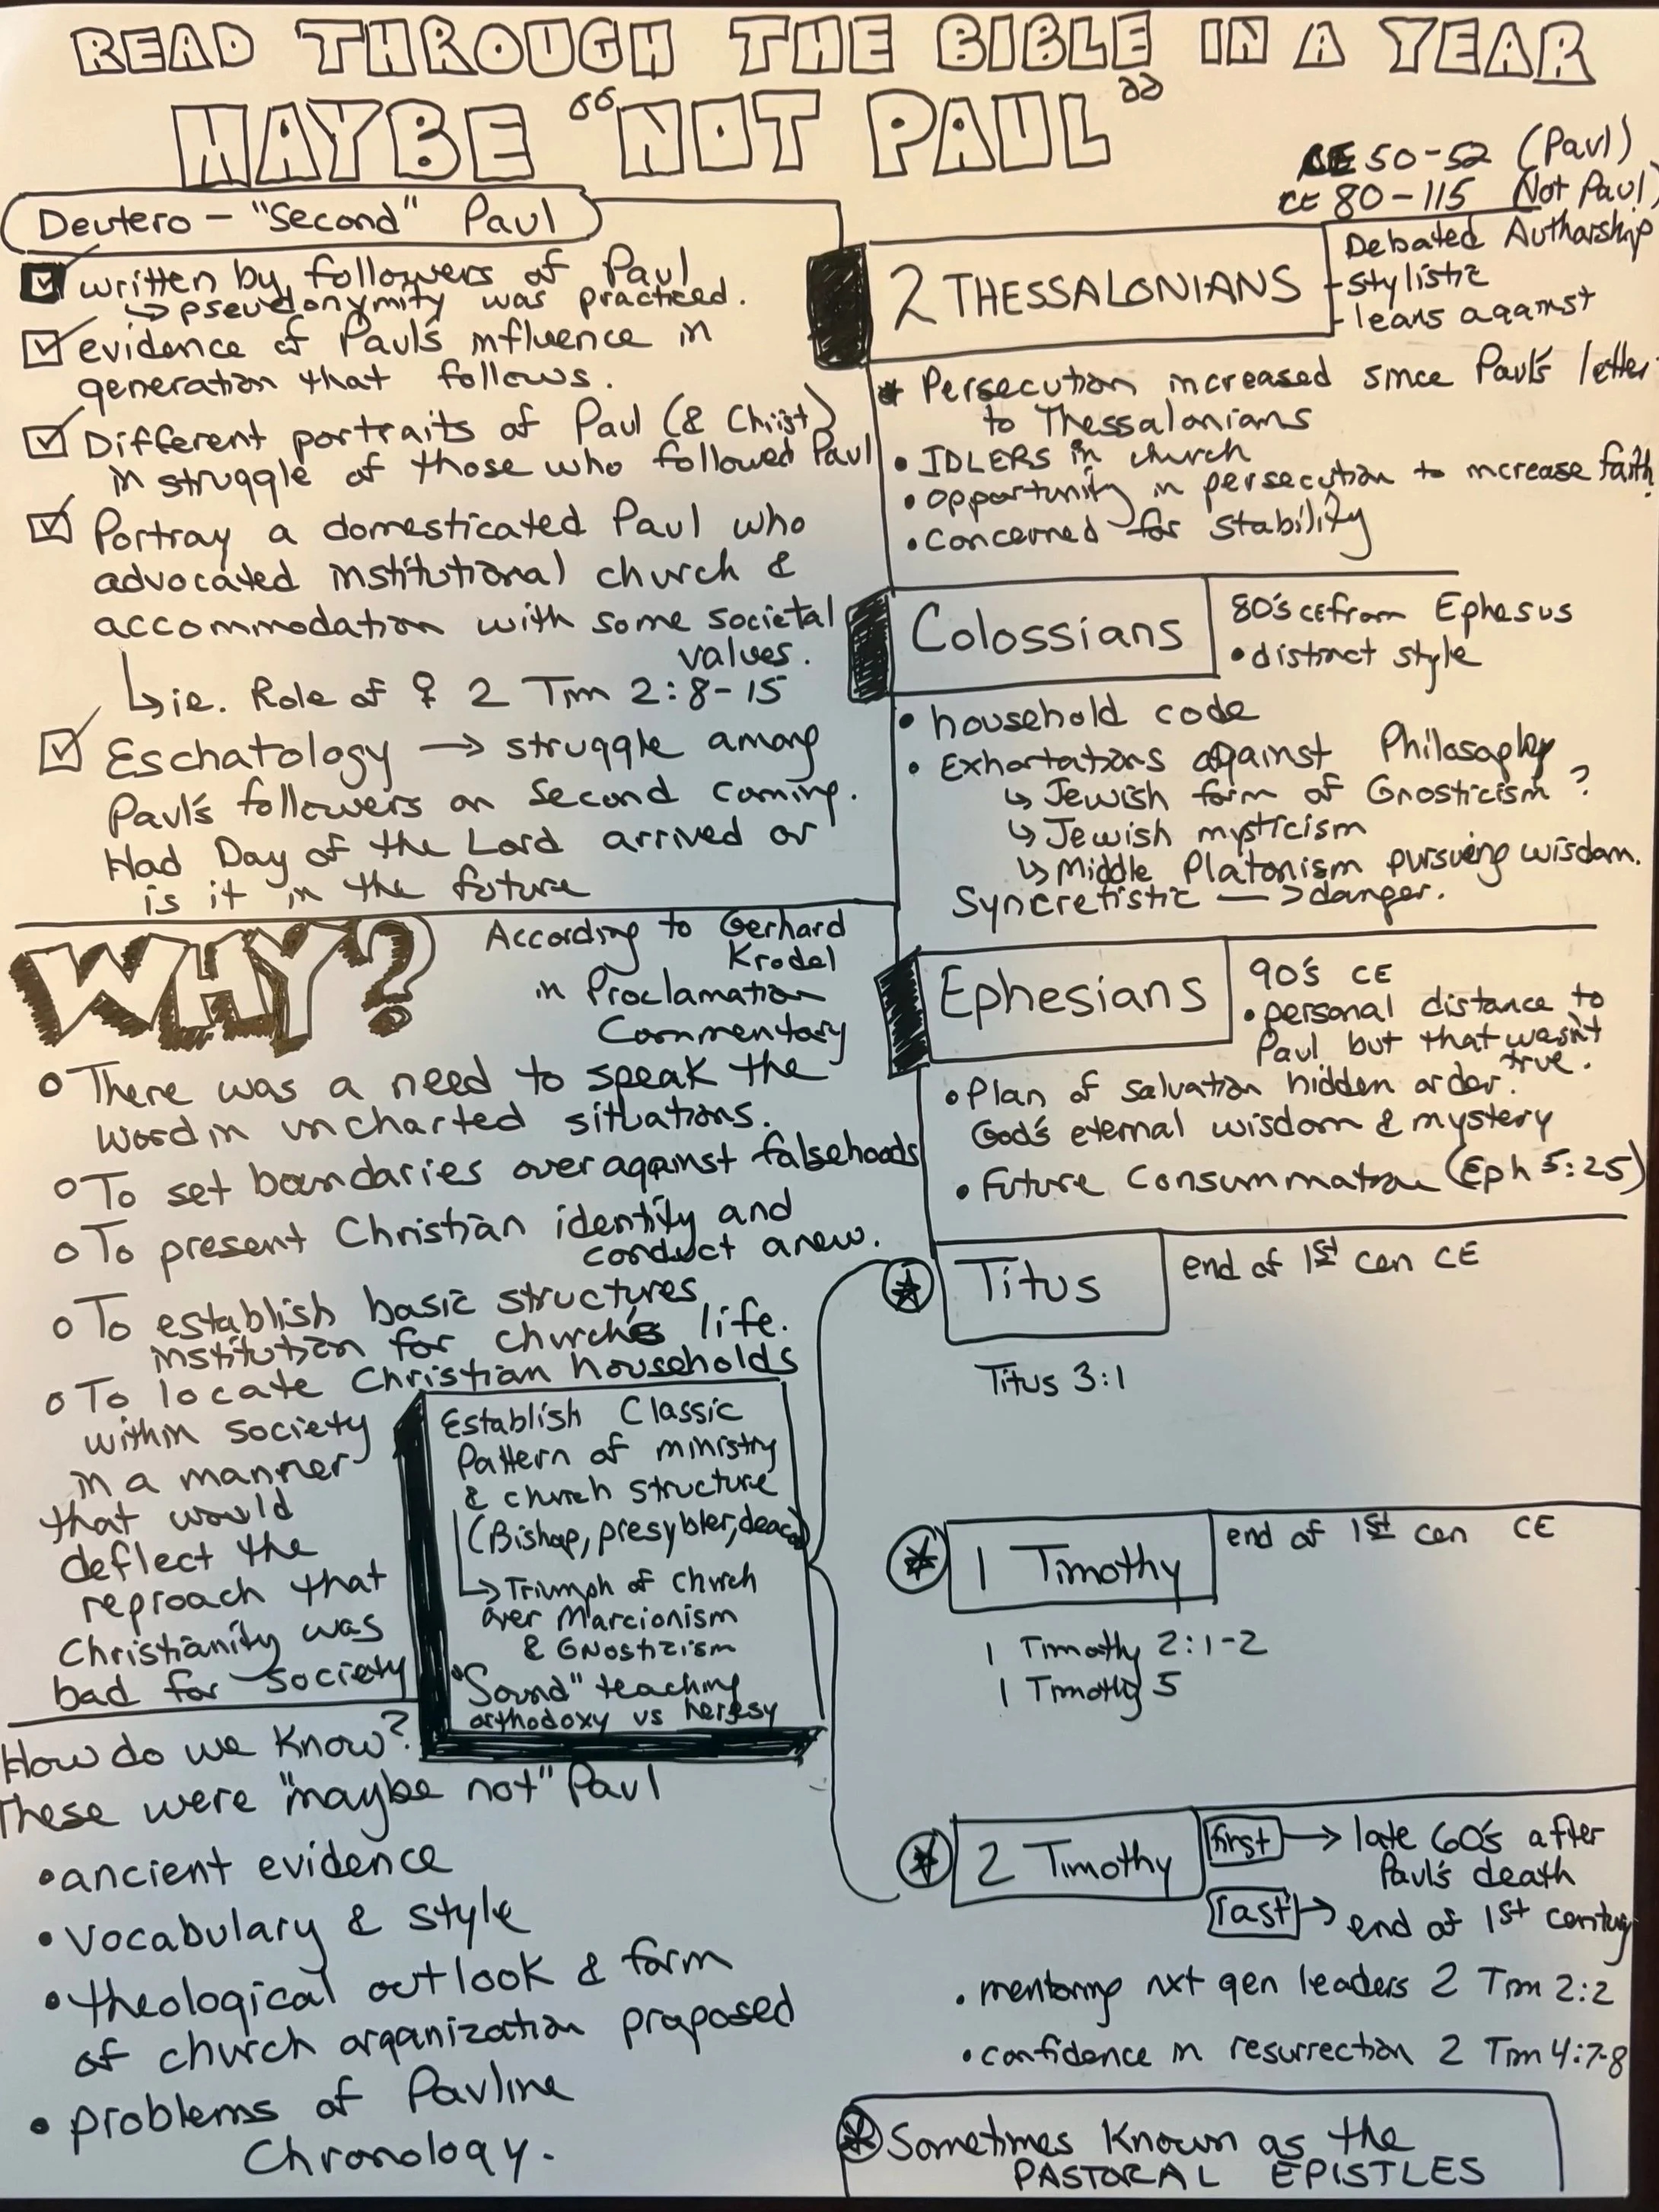 READ THROUGH THE BIBLE IN A YEAR
MAYBE "NOT PAUL"
CE 50-52 (Paul)
CE 80-115 (Not Paul)
Deutero - "Second" Paul
written by followers of Paul
↳ pseudonymity was practiced.
evidence of Paul's influence in
generation that follows.
Different portraits of Paul (& Christ)
in struggle of those who followed Paul
Portray a domesticated Paul who
advocated institutional church &
accommodation with some societal
values.
↳ ie. Role of ♀ 2 Tim 2:8-15
Eschatology → struggle among
Paul's followers on second coming.
Had Day of the Lord arrived or
is it in the future
WHY?
According to Gerhard
Krodel
in Proclamation
Commentary
There was a need to speak the
word in uncharted situations.
To set boundaries over against falsehoods
To present Christian identity and
conduct anew.
To establish basic structures
institution for church's life.
To locate Christian households
within society
in a manner
that would
deflect the
reproach that
Christianity was
bad for society
Establish Classic
Pattern of ministry
& church structure
(Bishop, presybter, deac)
→ Triumph of church
over Marcionism
& Gnosticism
• "Sound" teaching
orthodoxy vs heresy
How do we know?
These were "maybe not" Paul
• ancient evidence
• vocabulary & style
• theological outlook & form
of church organization proposed
• problems of Pauline
Chronology.
2 THESSALONIANS
Debated Authorship
- stylistic
- leans against
* Persecution increased since Paul's letter
to Thessalonians
• IDLERS in church
• opportunity in persecution to increase faith.
• concerned for stability
Colossians
80's CE from Ephesus
• distinct style
• household code
• Exhortations against Philosophy
↳ Jewish form of Gnosticism?
↳ Jewish mysticism
↳ Middle Platonism pursueing wisdom.
Syncretistic → danger.
Ephesians
90's CE
• personal distance to
Paul but that wasn't
true.
• Plan of salvation hidden order.
God's eternal wisdom & mystery
• Future Consummation (Eph 5:25)
Titus
end of 1st cen CE
Titus 3:1
1 Timothy
end of 1st cen CE
1 Timothy 2:1-2
1 Timothy 5
2 Timothy
first → late 60's after
Paul's death
last → end of 1st century
• mentoring nxt gen leaders 2 Tim 2:2
• confidence in resurrection 2 Tim 4:7-8
* Sometimes Known as the
PASTORAL EPISTLES